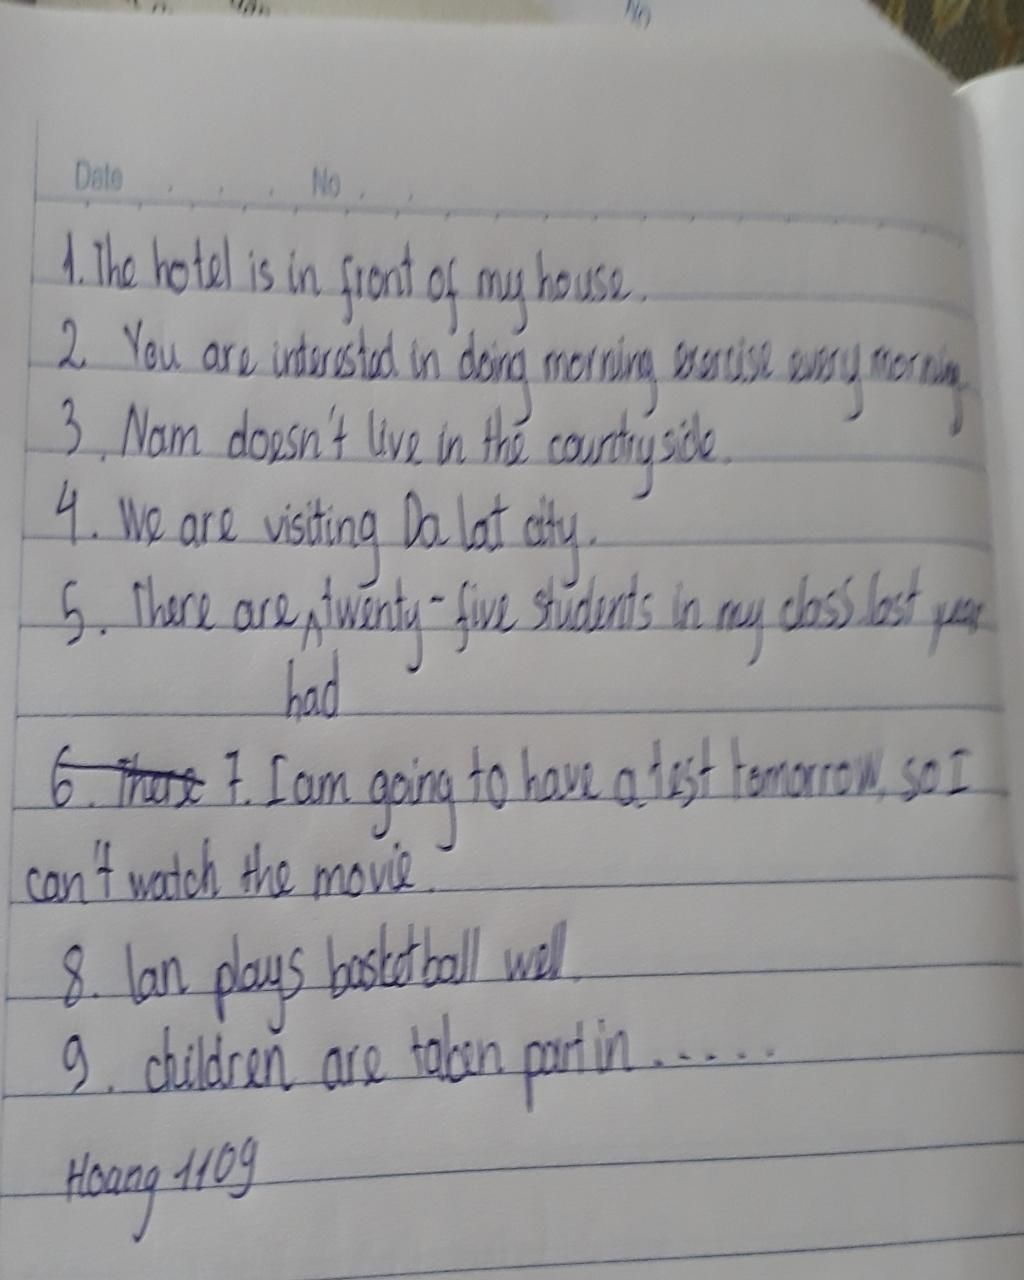 No
Date No
1. The hotel is in front of my house.
2. You are interested in doing morning exercise every morning
3. Nam doesn't live in the countryside.
4. We are visiting Da lat city.
5. There are, twenty-five students in my class last year
had
6. There 7. I am going to have a test tomorrow, so I
can't watch the movie.
8. lan plays basketball well.
9. children are taken part in ......
Hoang 1109